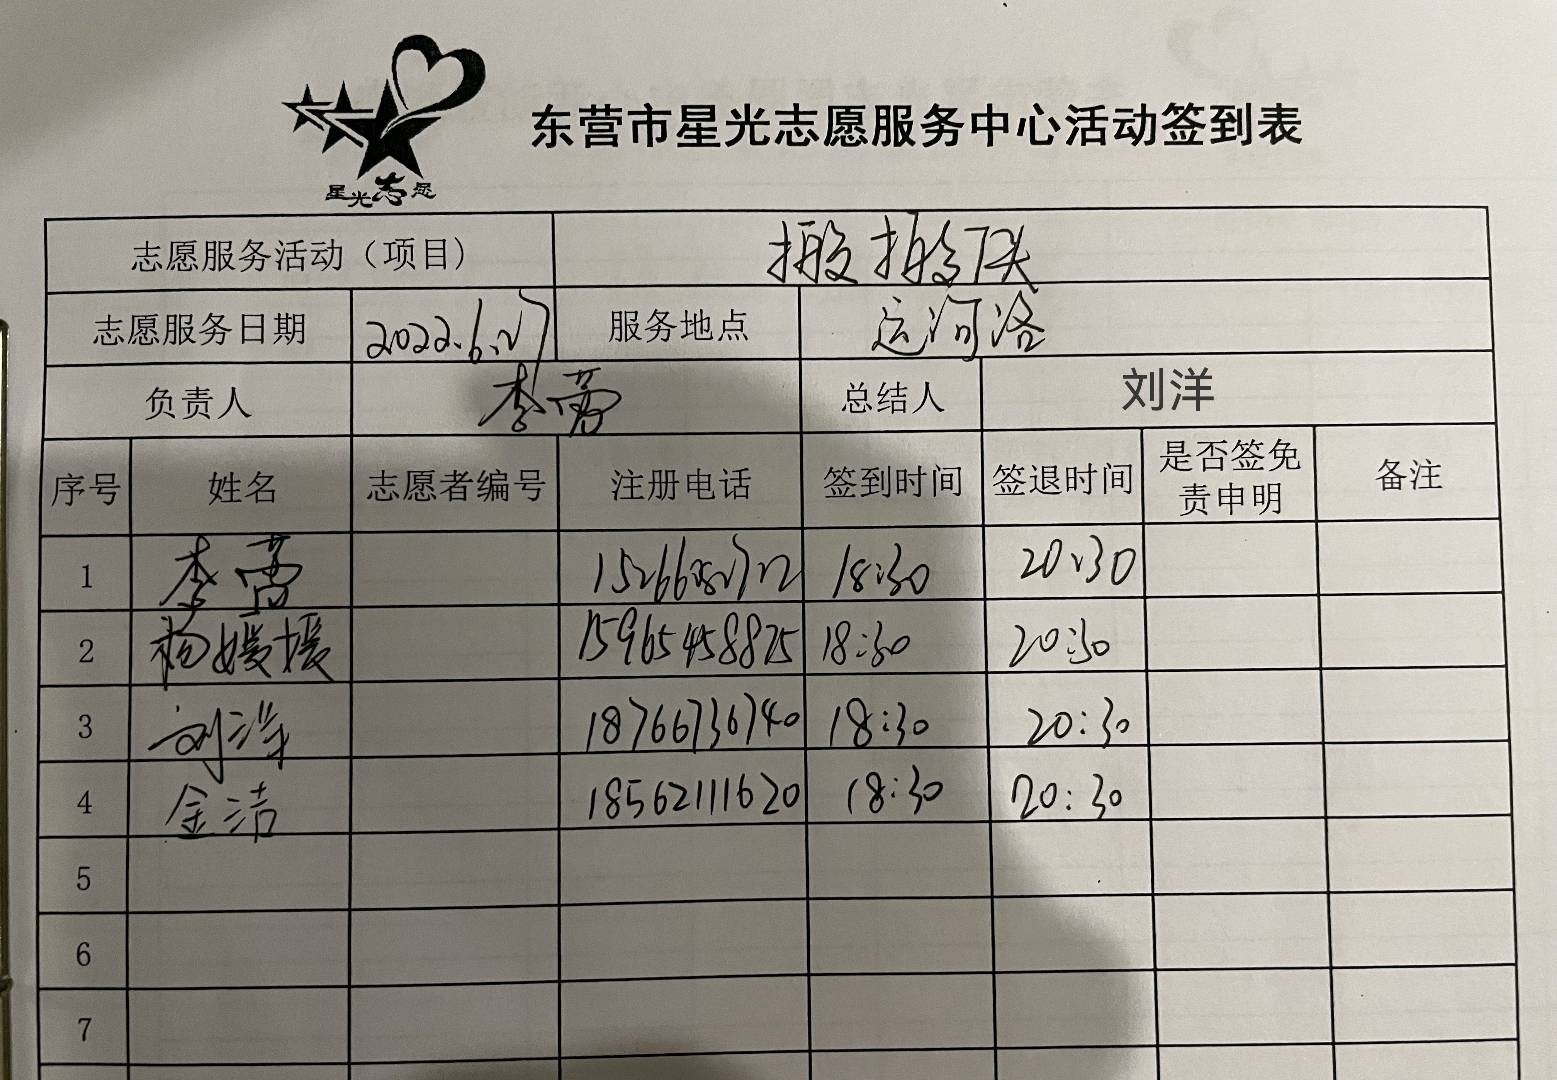 星光志愿
东营市星光志愿服务中心活动签到表
志愿服务活动（项目）
志愿服务日期 2022.6.27 服务地点 运河洛
负责人 李蕾 总结人 刘洋
序号 姓名 志愿者编号 注册电话 签到时间 签退时间 是否签免责申明 备注
1 李蕾 18:30 20:30
2 杨媛媛 15965458825 18:30 20:30
3 刘洋 18766736740 18:30 20:30
4 金洁 18562111620 18:30 20:30
5
6
7